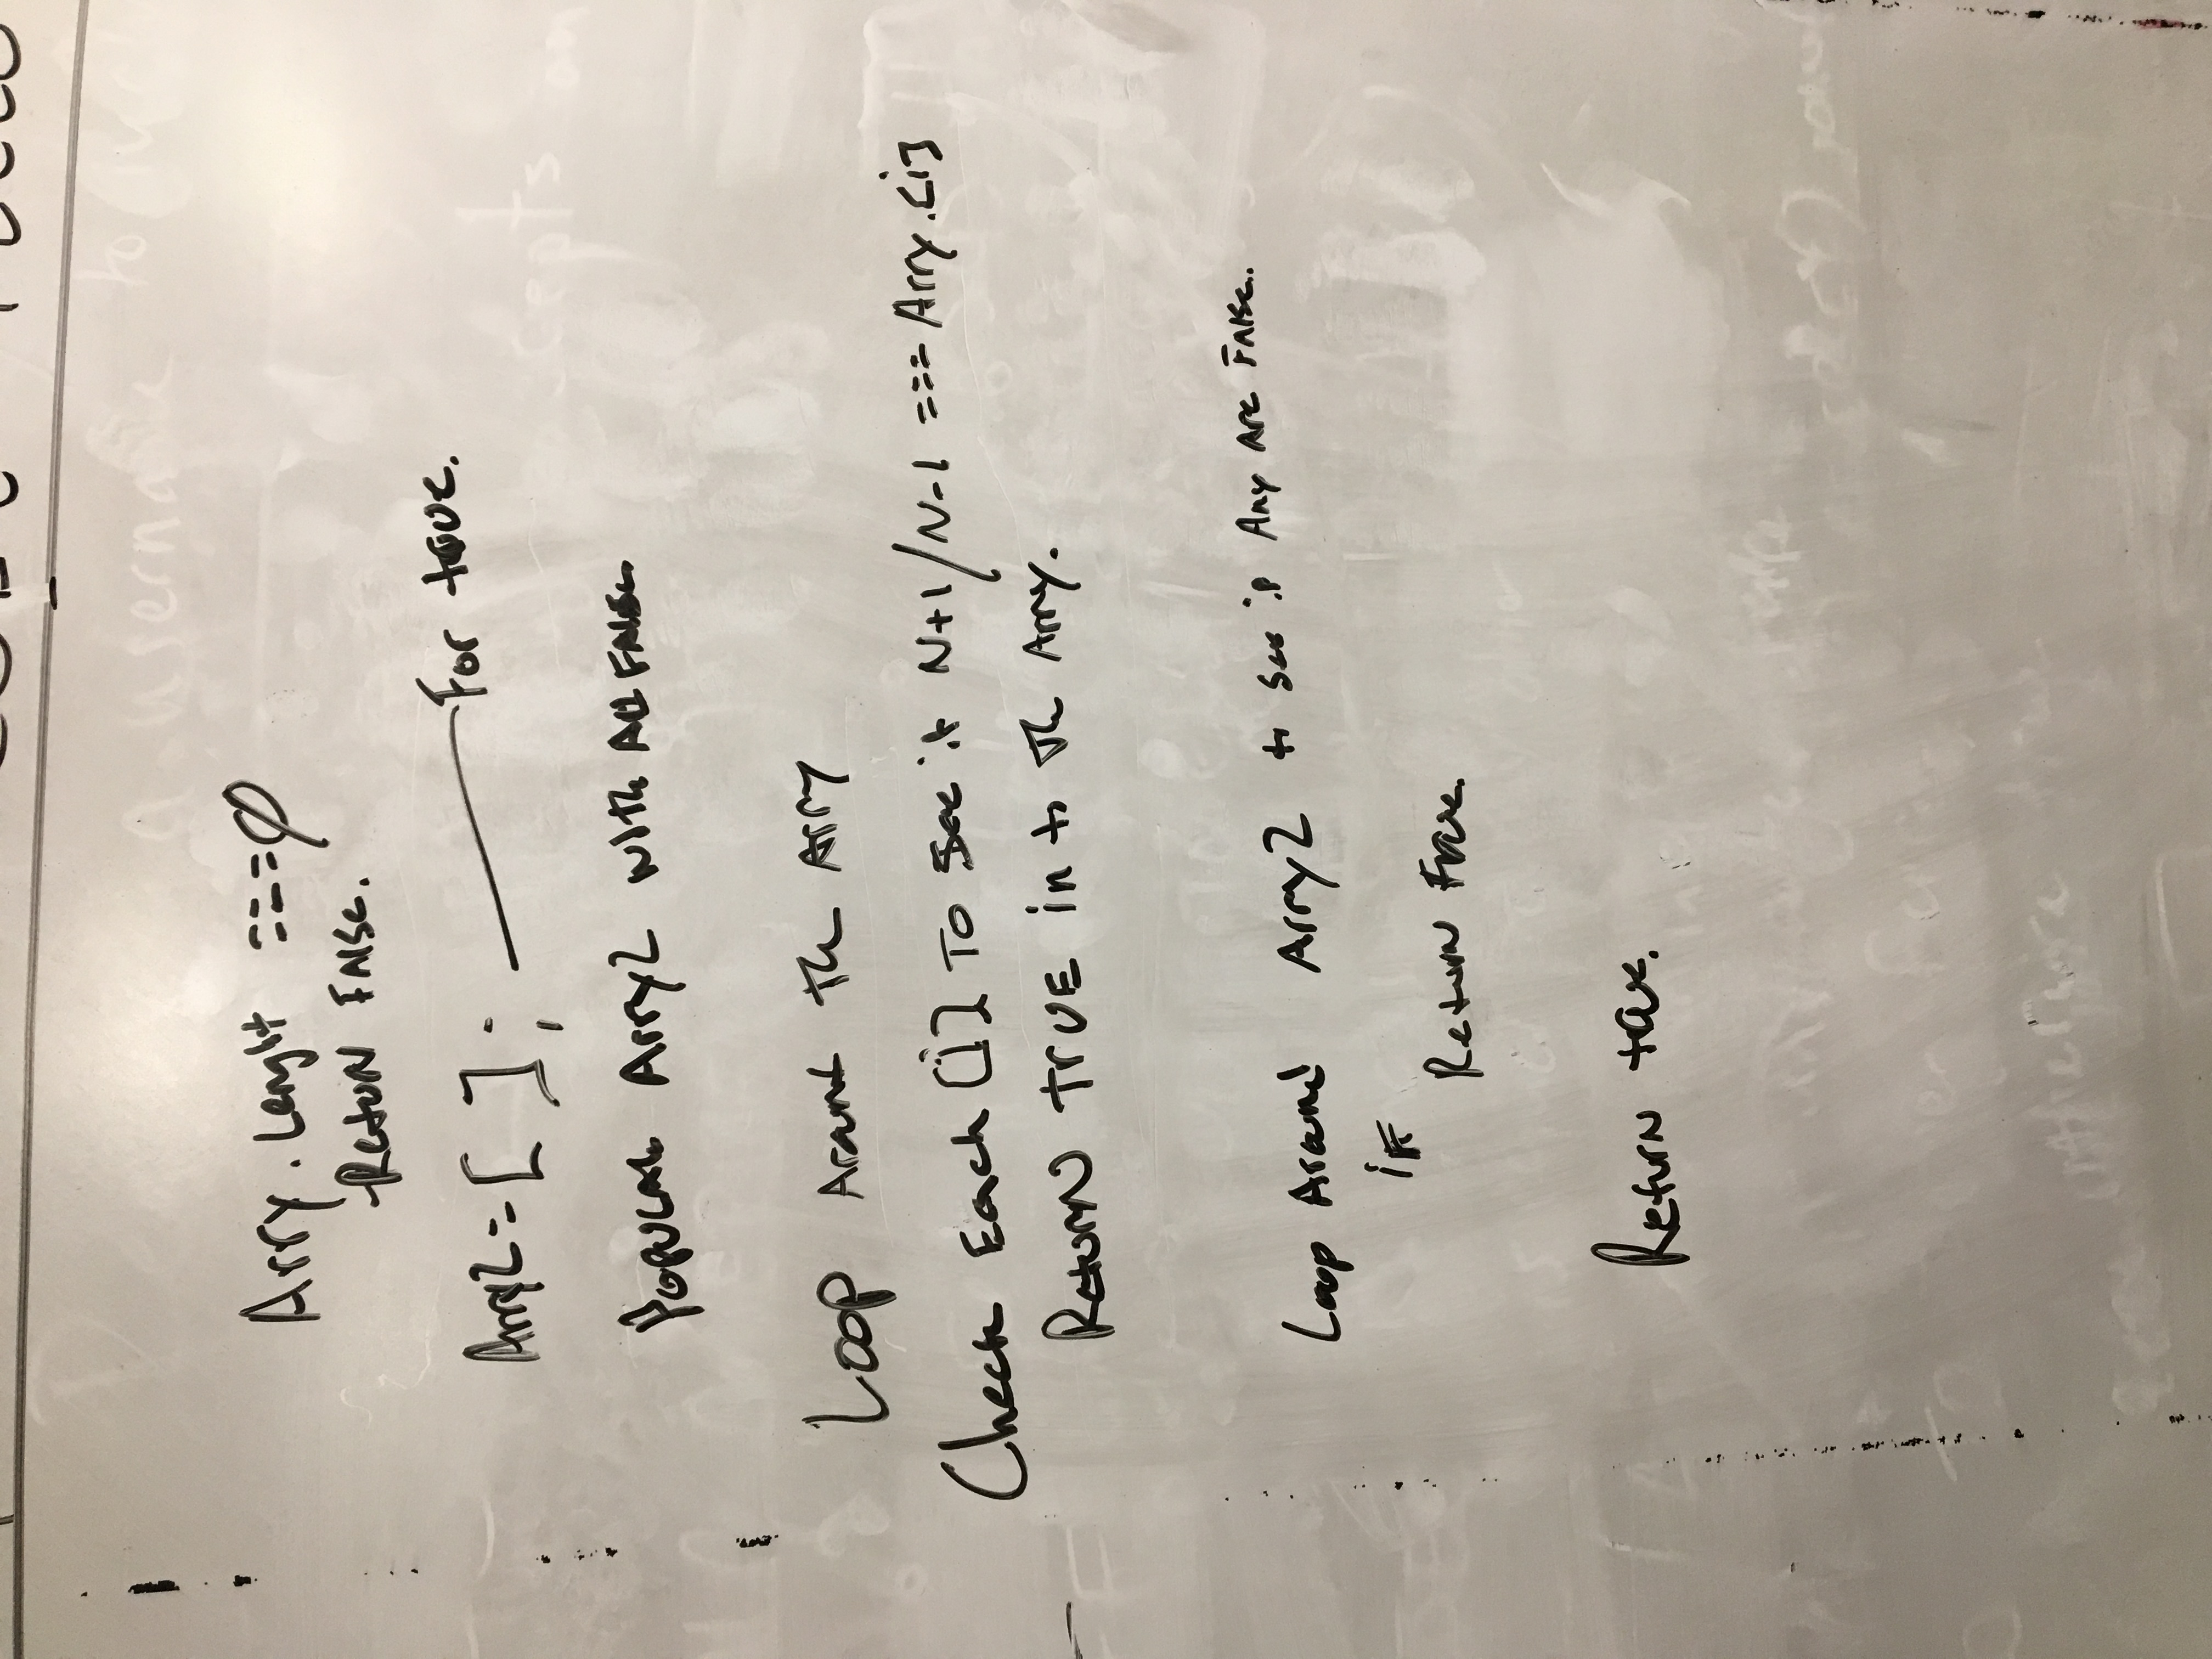 Arry. Lenght ===0
Return False.
Arry2=[ ]; For true.
Populate Arry2 with All False
Loop Around The Arry
Check Each [i] To See if N+1/N-1 === Arry.[i]
Return TRUE in to The Arry.
Loop Around Arry2 to See if Any Are False.
if
Return
Return true.